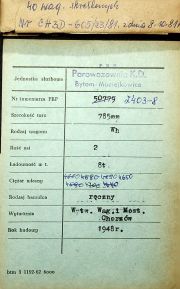 40 wag. skreślonych
Nr CH3D-605/23/81. z dnia 8.10.81r
Parowozownia K.D.
Bytom-Maciejkowice
Jednostka służbowa
Nr inwentarza PKP 2403-8
Szerokość toru 785mm
Rodzaj wagonu Wh
Ilość osi 2
Ładowność w t. 8t.
Ciężar własny
Rodzaj hamulca ręczny
Wytwórnia W-twa. Wag. i Most.
Chorzów
Rok budowy 1948r.